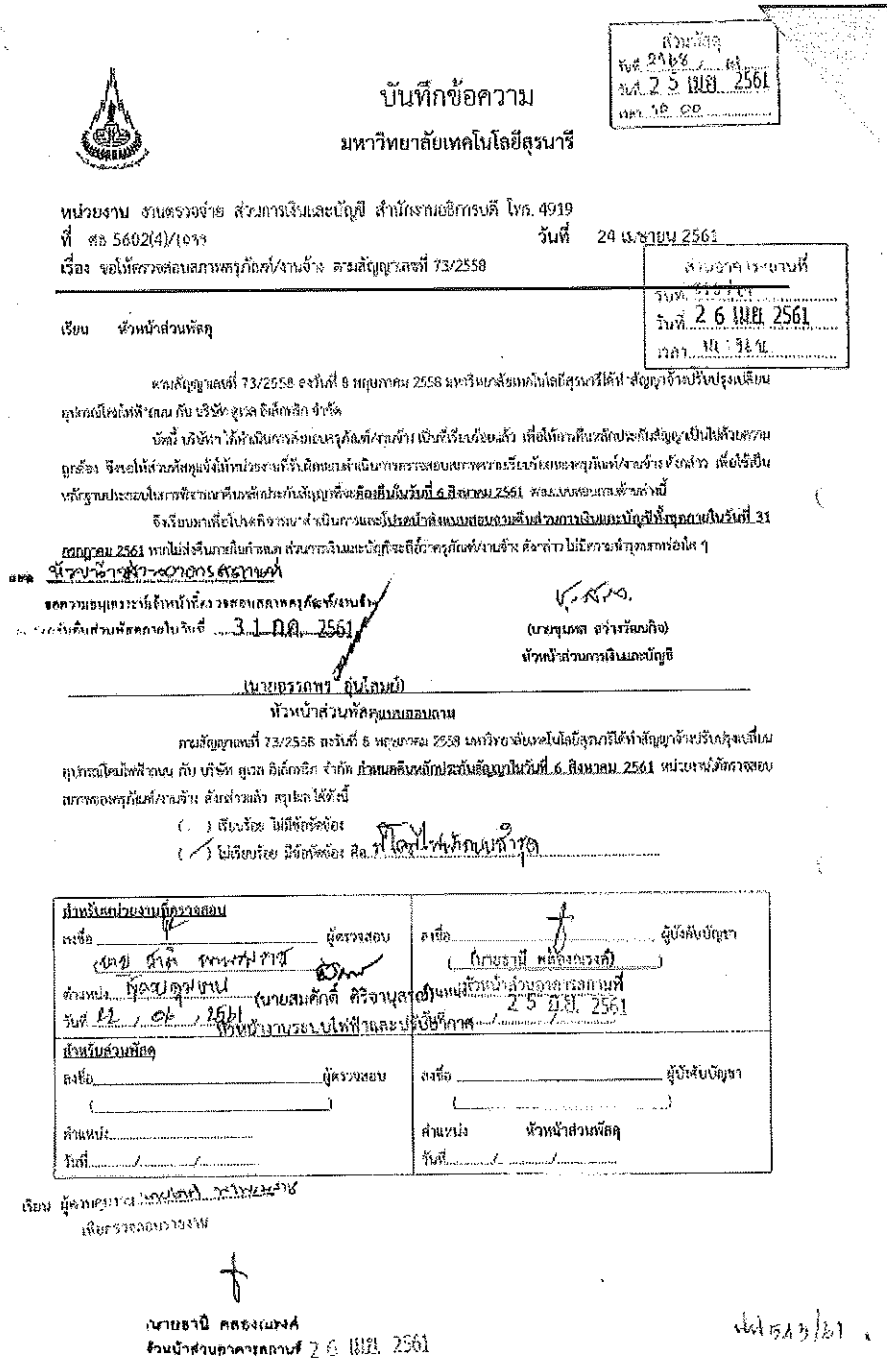 ส่วนพัสดุ
วันที่ 25 เม.ย. 2561
เวลา
บันทึกข้อความ
มหาวิทยาลัยเทคโนโลยีสุรนารี
หน่วยงาน งานตรวจจ่าย ส่วนการเงินและบัญชี สำนักงานอธิการบดี โทร. 4919
ที่ ศธ 5602(4)/ วันที่ 24 เมษายน 2561
เรื่อง ขอให้ตรวจสอบสภาพครุภัณฑ์/งานจ้าง ตามสัญญาเลขที่ 73/2558
ส่วนอาคารสถานที่
วันที่ 26 เม.ย. 2561
เวลา
เรียน หัวหน้าส่วนพัสดุ
ตามสัญญาเลขที่ 73/2558 ลงวันที่ 8 พฤษภาคม 2558 มหาวิทยาลัยเทคโนโลยีสุรนารีได้ทำสัญญาจ้างปรับปรุงเปลี่ยน
อุปกรณ์โคมไฟฟ้าถนน กับ บริษัท ดูเวล อิเล็กทริก จำกัด
บัดนี้ บริษัทฯ ได้ดำเนินการส่งมอบครุภัณฑ์/งานจ้าง เป็นที่เรียบร้อยแล้ว เพื่อให้การคืนหลักประกันสัญญาเป็นไปด้วยความ
ถูกต้อง จึงขอให้ส่วนพัสดุแจ้งให้หน่วยงานที่รับผิดชอบดำเนินการตรวจสอบสภาพความเรียบร้อยของครุภัณฑ์/งานจ้าง ดังกล่าว เพื่อใช้เป็น
หลักฐานประกอบในการพิจารณาคืนหลักประกันสัญญาที่จะต้องคืนในวันที่ 6 สิงหาคม 2561 ตามแบบสอบถามด้านล่างนี้
จึงเรียนมาเพื่อโปรดพิจารณาดำเนินการและโปรดนำส่งแบบสอบถามคืนส่วนการเงินและบัญชีทั้งชุดภายในวันที่ 31
กรกฎาคม 2561 หากไม่ส่งคืนภายในกำหนด ส่วนการเงินและบัญชีจะถือว่าครุภัณฑ์/งานจ้าง ดังกล่าว ไม่มีความชำรุดบกพร่องใด ๆ
หัวหน้าส่วนอาคารสถานที่
ขอความอนุเคราะห์เจ้าหน้าที่ตรวจสอบสภาพครุภัณฑ์/งานจ้าง
คืนส่วนพัสดุภายในวันที่ 31 ก.ค. 2561
(นายชุมพล สว่างวัฒนกิจ)
หัวหน้าส่วนการเงินและบัญชี
(นายอรรถพร อุ่นโสมย์)
หัวหน้าส่วนพัสดุ แบบสอบถาม
ตามสัญญาเลขที่ 73/2558 ลงวันที่ 8 พฤษภาคม 2558 มหาวิทยาลัยเทคโนโลยีสุรนารีได้ทำสัญญาจ้างปรับปรุงเปลี่ยน
อุปกรณ์โคมไฟฟ้าถนน กับ บริษัท ดูเวล อิเล็กทริก จำกัด กำหนดคืนหลักประกันสัญญาในวันที่ 6 สิงหาคม 2561 หน่วยงานได้ตรวจสอบ
สภาพของครุภัณฑ์/งานจ้าง ดังกล่าวแล้ว สรุปผลได้ดังนี้
( ) เรียบร้อย ไม่มีข้อขัดข้อง
( / ) ไม่เรียบร้อย มีข้อขัดข้อง คือ มีโคมไฟฟ้าถนนชำรุด
สำหรับหน่วยงานที่ตรวจสอบ
ลงชื่อ ผู้ตรวจสอบ ลงชื่อ ผู้บังคับบัญชา
(นายธานี คล้องณรงค์)
ตำแหน่ง ผู้ควบคุมงาน (นายสมศักดิ์ ศิริจานุสรณ์) ตำแหน่ง หัวหน้าส่วนอาคารสถานที่
วันที่ 22 / 06 / 2561 หัวหน้างานระบบไฟฟ้าและปรับอากาศ วันที่ 25 มิ.ย. 2561
สำหรับส่วนพัสดุ
ลงชื่อ ผู้ตรวจสอบ ลงชื่อ ผู้บังคับบัญชา
( ) ( )
ตำแหน่ง ตำแหน่ง หัวหน้าส่วนพัสดุ
วันที่ / / วันที่ / /
เรียน
เพื่อตรวจสอบรายงาน
นายธานี คล้องณรงค์
หัวหน้าส่วนอาคารสถานที่ 26 เม.ย. 2561